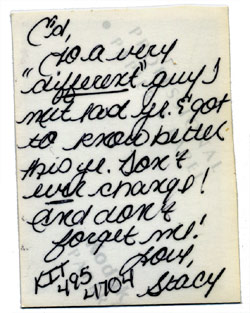 Ed,
To a very
"different" guy I
met last yr. & got
to know better
this yr. Don't
ever change!
And don't
forget me!
Love,
Stacy
KIT
495
4704